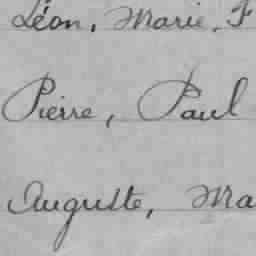 Léon, Marie, F
Pierre, Paul
Auguste, Ma